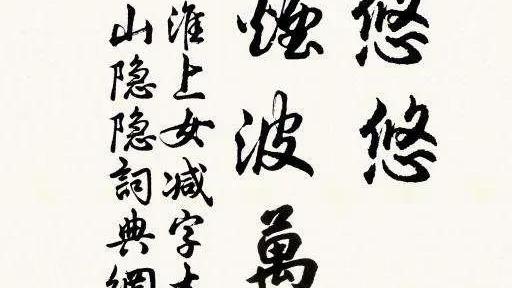 悠悠
煙波萬
淮上女减字木
山隐隐詞典網